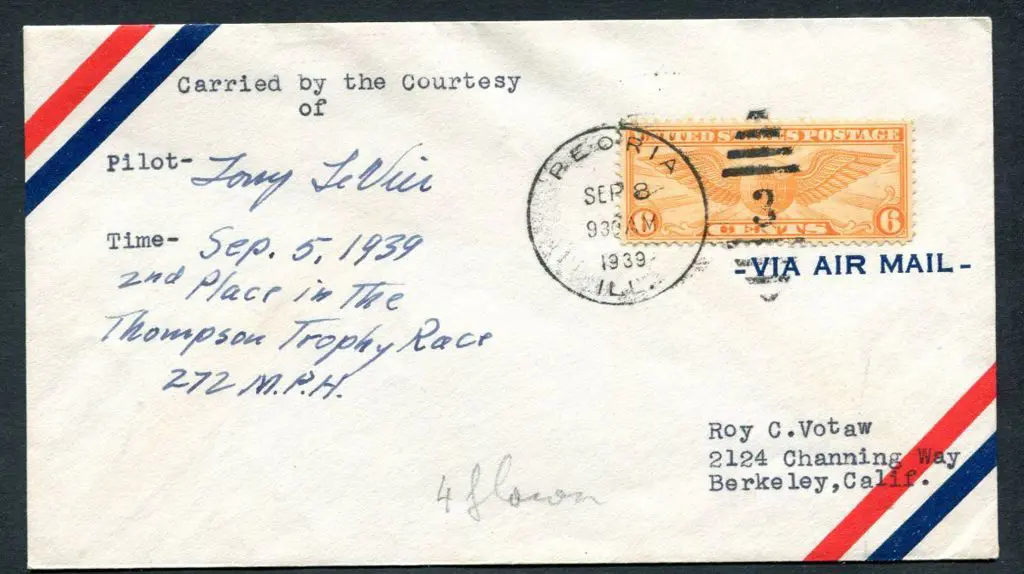 Carried by the Courtesy
of
Pilot- Tony LeVier
Time- Sep. 5, 1939
2nd Place in the
Thompson Trophy Race
272 M.P.H.
PEORIA
SEP 8
930AM
1939
ILL.
UNITED STATES POSTAGE
3
6 CENTS 6
-VIA AIR MAIL-
Roy C.Votaw
2124 Channing Way
Berkeley,Calif.
4 flown